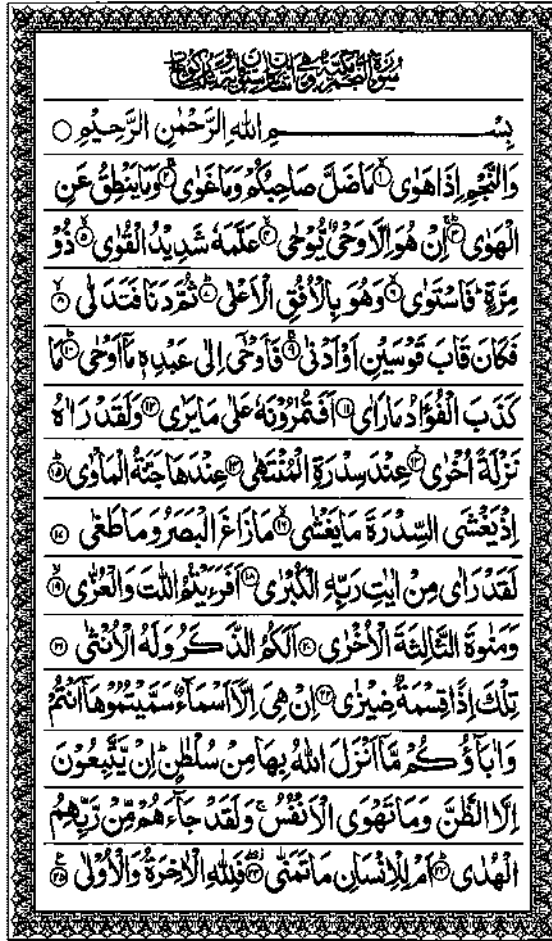 سُوْرَةُ النَّجْمِ مَكِّيَّةٌ وَّهِيَ اثْنَتَانِ وَسِتُّوْنَ اٰيَةً وَّثَلٰثُ رُكُوْعَاتٍ
بِسْمِ اللّٰهِ الرَّحْمٰنِ الرَّحِيْمِ ○
وَالنَّجْمِ اِذَا هَوٰى ۝۱ مَا ضَلَّ صَاحِبُكُمْ وَمَا غَوٰى ۝۲ وَمَا يَنْطِقُ عَنِ
الْهَوٰى ۝۳ اِنْ هُوَ اِلَّا وَحْيٌ يُّوْحٰى ۝۴ عَلَّمَهٗ شَدِيْدُ الْقُوٰى ۝۵ ذُوْ
مِرَّةٍ ؕ فَاسْتَوٰى ۝۶ وَهُوَ بِالْاُفُقِ الْاَعْلٰى ۝۷ ثُمَّ دَنَا فَتَدَلّٰى ۝۸
فَكَانَ قَابَ قَوْسَيْنِ اَوْ اَدْنٰى ۝۹ فَاَوْحٰٓى اِلٰى عَبْدِهٖ مَآ اَوْحٰى ۝۱۰ مَا
كَذَبَ الْفُؤَادُ مَا رَاٰى ۝۱۱ اَفَتُمٰرُوْنَهٗ عَلٰى مَا يَرٰى ۝۱۲ وَلَقَدْ رَاٰهُ
نَزْلَةً اُخْرٰى ۝۱۳ عِنْدَ سِدْرَةِ الْمُنْتَهٰى ۝۱۴ عِنْدَهَا جَنَّةُ الْمَاْوٰى ۝۱۵
اِذْ يَغْشَى السِّدْرَةَ مَا يَغْشٰى ۝۱۶ مَا زَاغَ الْبَصَرُ وَمَا طَغٰى ۝۱۷
لَقَدْ رَاٰى مِنْ اٰيٰتِ رَبِّهِ الْكُبْرٰى ۝۱۸ اَفَرَءَيْتُمُ اللّٰتَ وَالْعُزّٰى ۝۱۹
وَمَنٰوةَ الثَّالِثَةَ الْاُخْرٰى ۝۲۰ اَلَكُمُ الذَّكَرُ وَلَهُ الْاُنْثٰى ۝۲۱
تِلْكَ اِذًا قِسْمَةٌ ضِيْزٰى ۝۲۲ اِنْ هِيَ اِلَّآ اَسْمَآءٌ سَمَّيْتُمُوْهَآ اَنْتُمْ
وَاٰبَآؤُكُمْ مَّآ اَنْزَلَ اللّٰهُ بِهَا مِنْ سُلْطٰنٍ ؕ اِنْ يَّتَّبِعُوْنَ
اِلَّا الظَّنَّ وَمَا تَهْوَى الْاَنْفُسُ ۚ وَلَقَدْ جَآءَهُمْ مِّنْ رَّبِّهِمُ
الْهُدٰى ۝۲۳ اَمْ لِلْاِنْسَانِ مَا تَمَنّٰى ۝۲۴ فَلِلّٰهِ الْاٰخِرَةُ وَالْاُوْلٰى ۝۲۵